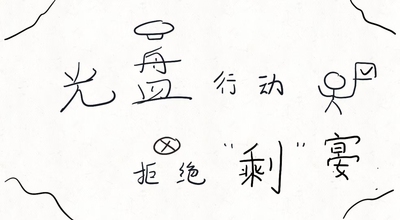 光盘行动
拒绝"剩"宴